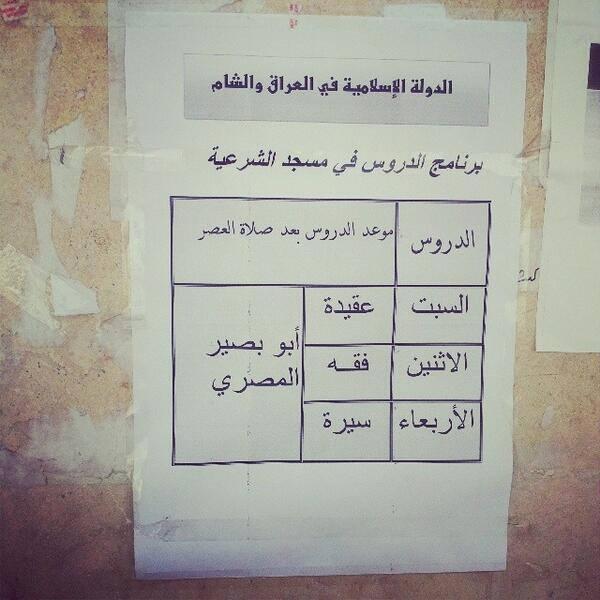 الدولة الإسلامية في العراق والشام
برنامج الدروس في مسجد الشرعية
الدروس موعد الدروس بعد صلاة العصر
السبت عقيدة
أبو بصير المصري
الاثنين فقه
الأربعاء سيرة